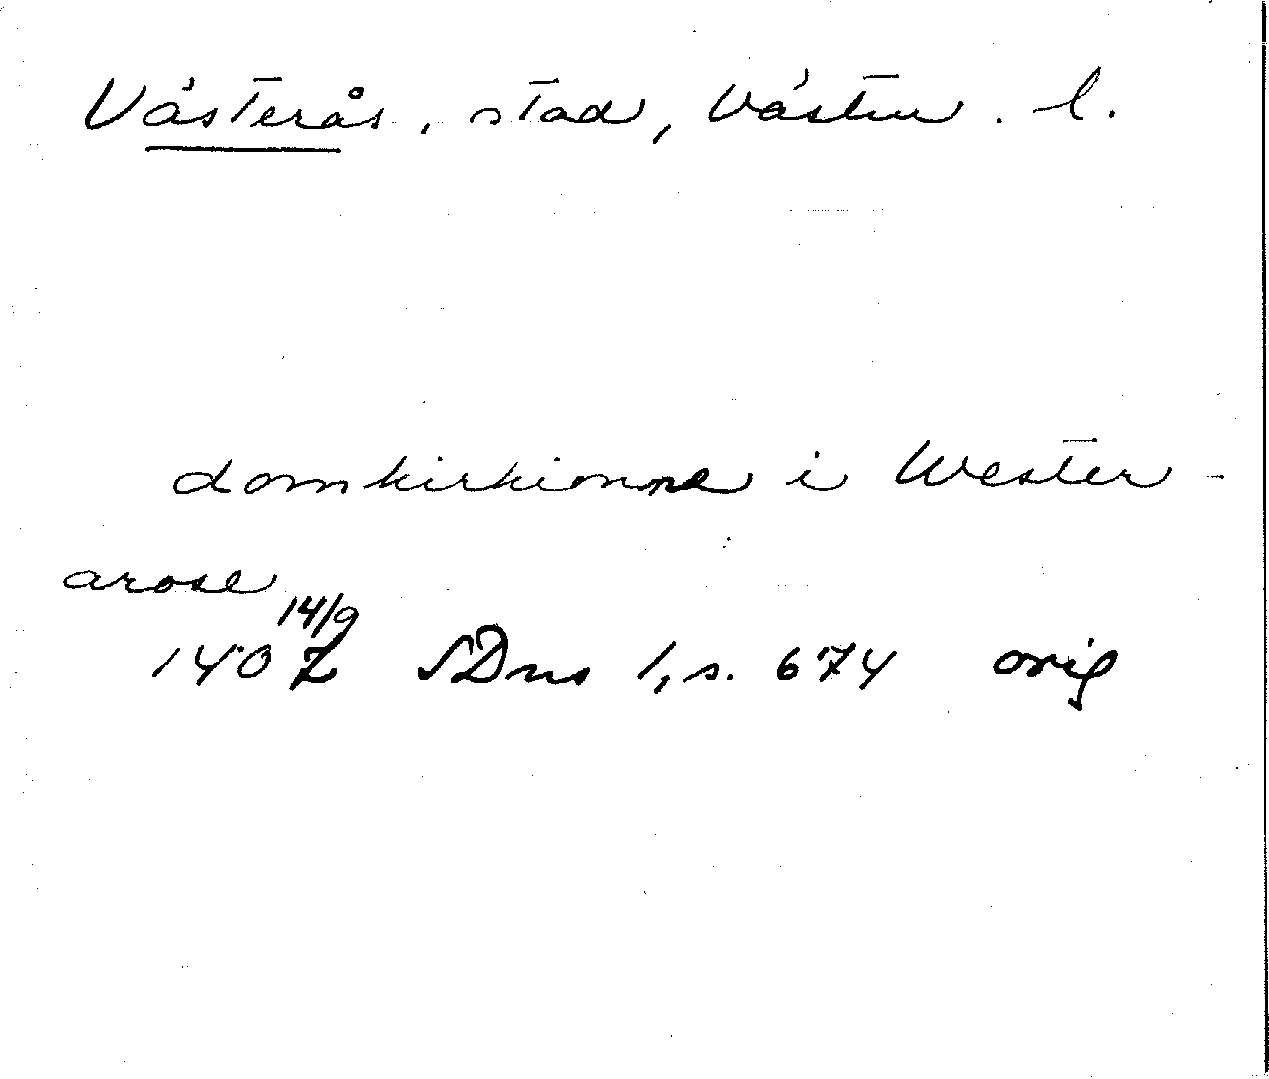 Västerås, stad, Västm. l.
domkirkionne i Wester-
arose
14/9
1407 SDns 1, s. 674 orig